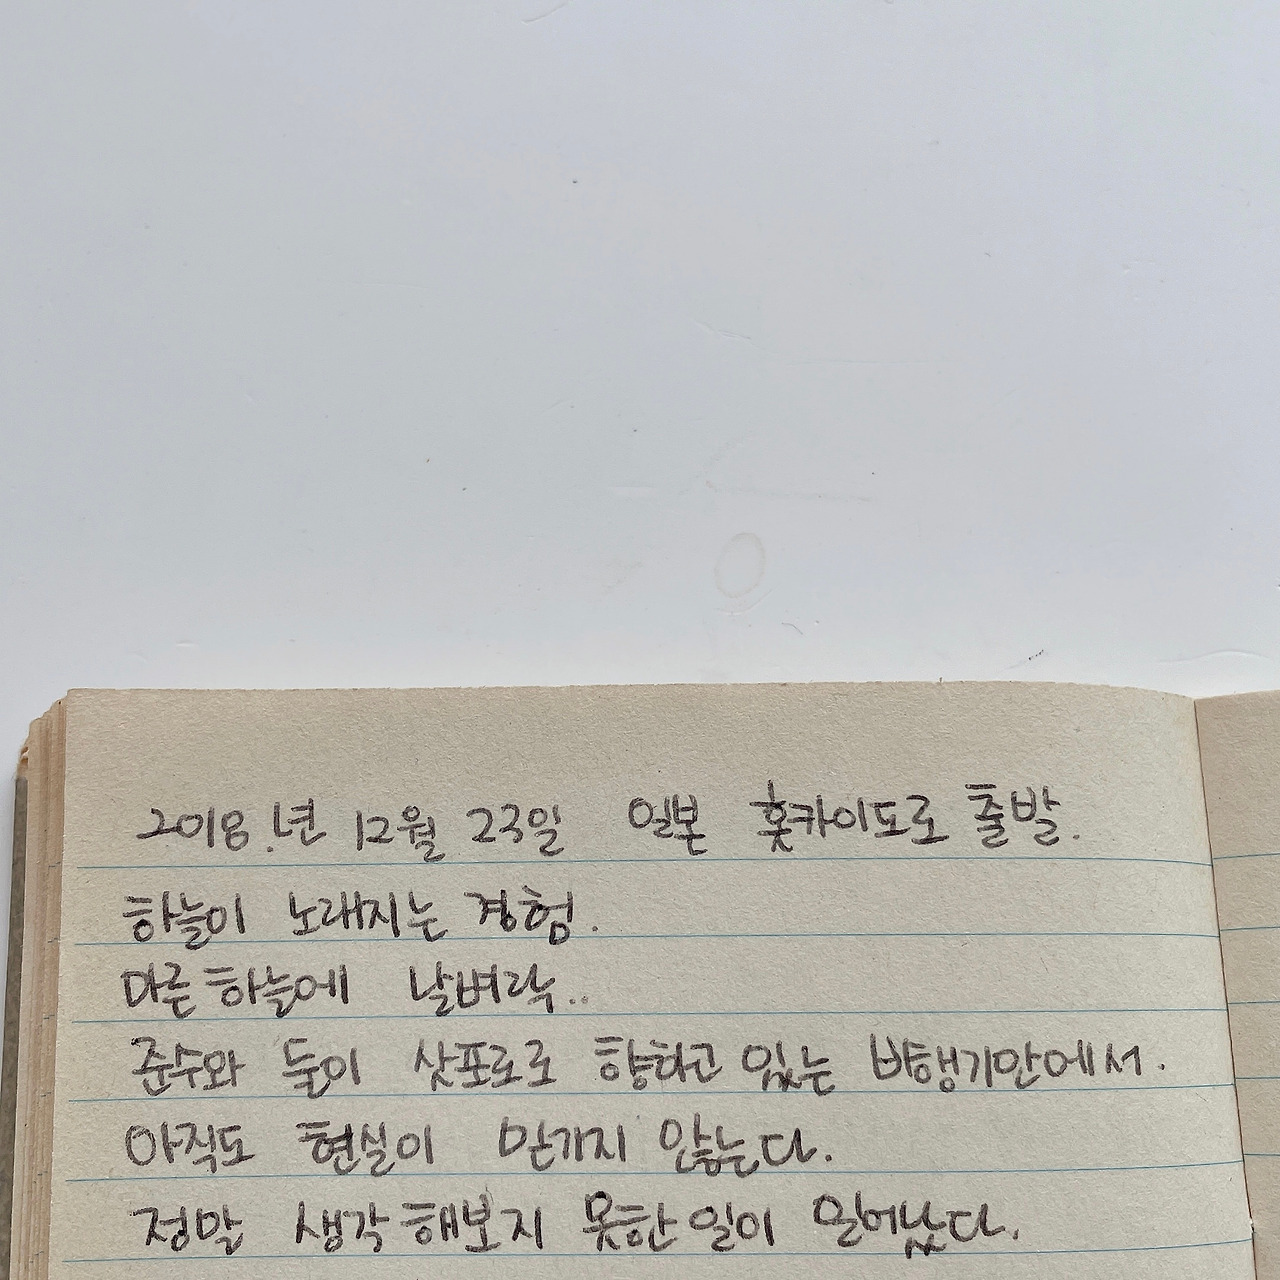 2018.년 12월 23일 일본 홋카이도로 출발.
하늘이 노래지는 경험.
마른하늘에 날벼락..
준수와 둘이 삿포로로 향하고 있는 비행기안에서.
아직도 현실이 믿기지 않는다.
정말 생각해보지 못한 일이 일어났다.